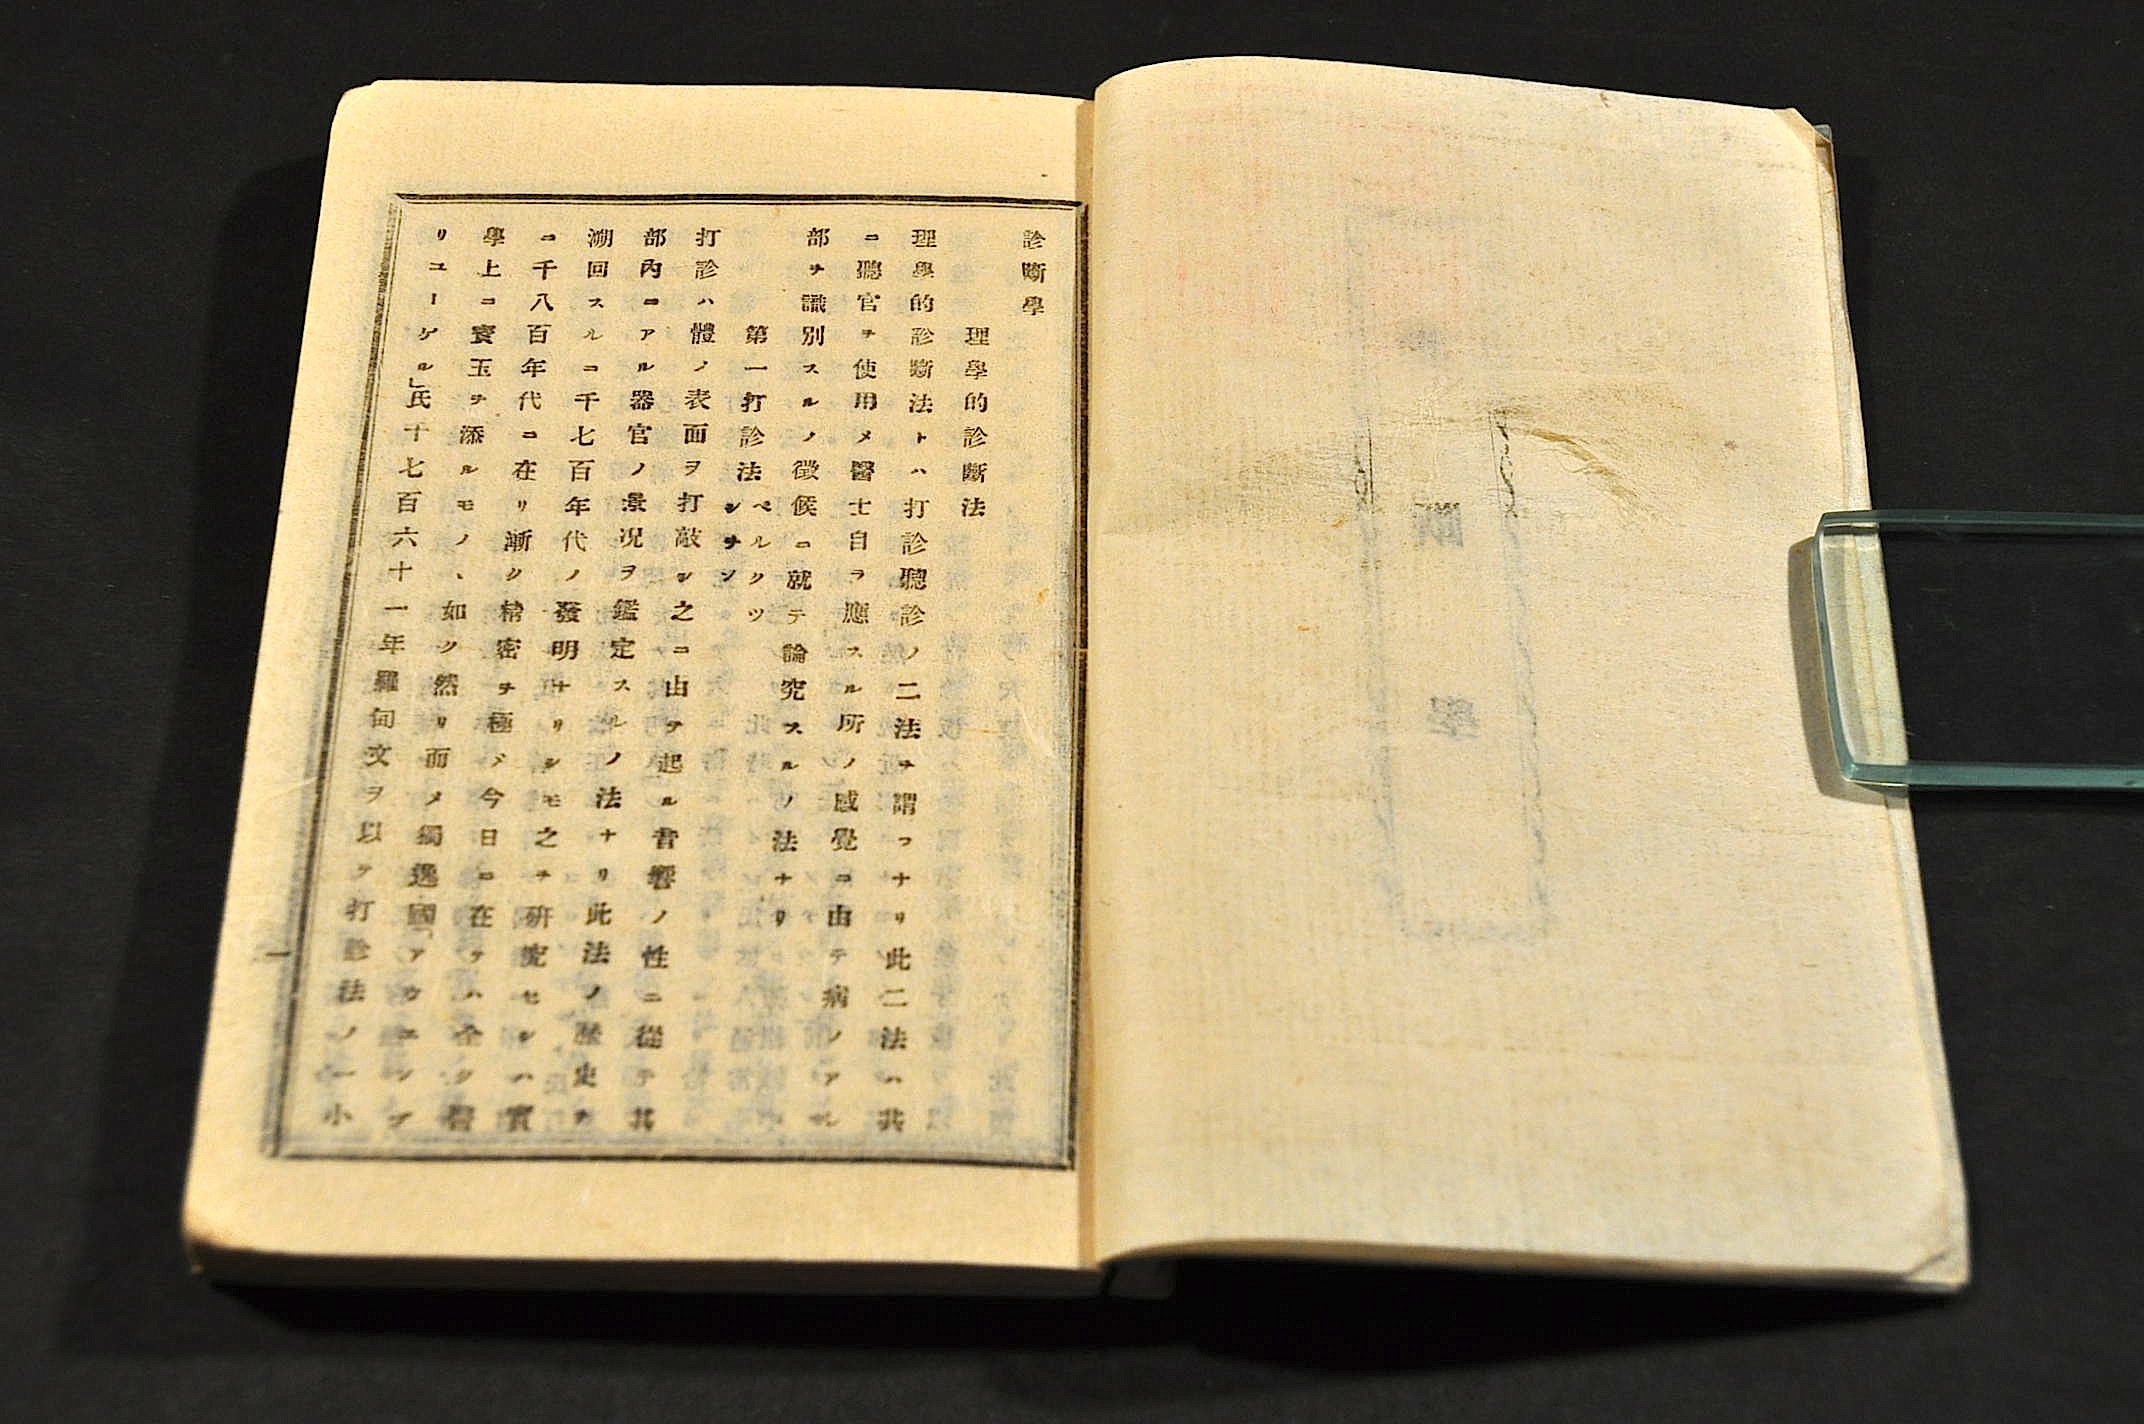 診斷學
理學的診斷法
理學的診斷法トハ打診聽診ノ二法ヲ謂フナリ此二法ハ共
ニ聽官ヲ使用メ醫士自ラ應スル所ノ感覺ニ由テ病ノアル
部ヲ識別スルノ徴候ニ就テ論究スルノ法ナリ
第一打診法ペルクツシヲン
打診ハ體ノ表面ヲ打敲シ之ニ由テ起ル音響ノ性ニ從テ其
部內ニアル器官ノ景況ヲ鑑定スルノ法ナリ此法ノ歷史ヲ
溯回スルニ千七百年代ノ發明ナリシモ之ヲ硏究セシハ實
ニ千八百年代ニ在リ漸ク精密ヲ極メ今日ニ在テハ全ク醫
學上ニ寳玉ヲ添ルモノヽ如ク然リ而メ獨逸國「アウエンブ
リユーゲル」氏千七百六十一年羅甸文ヲ以テ打診法ノ一小
一